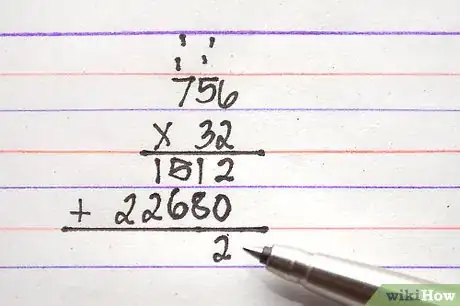 1 1
1 1
756
x 32
1512
+ 22680
2
wikiHow